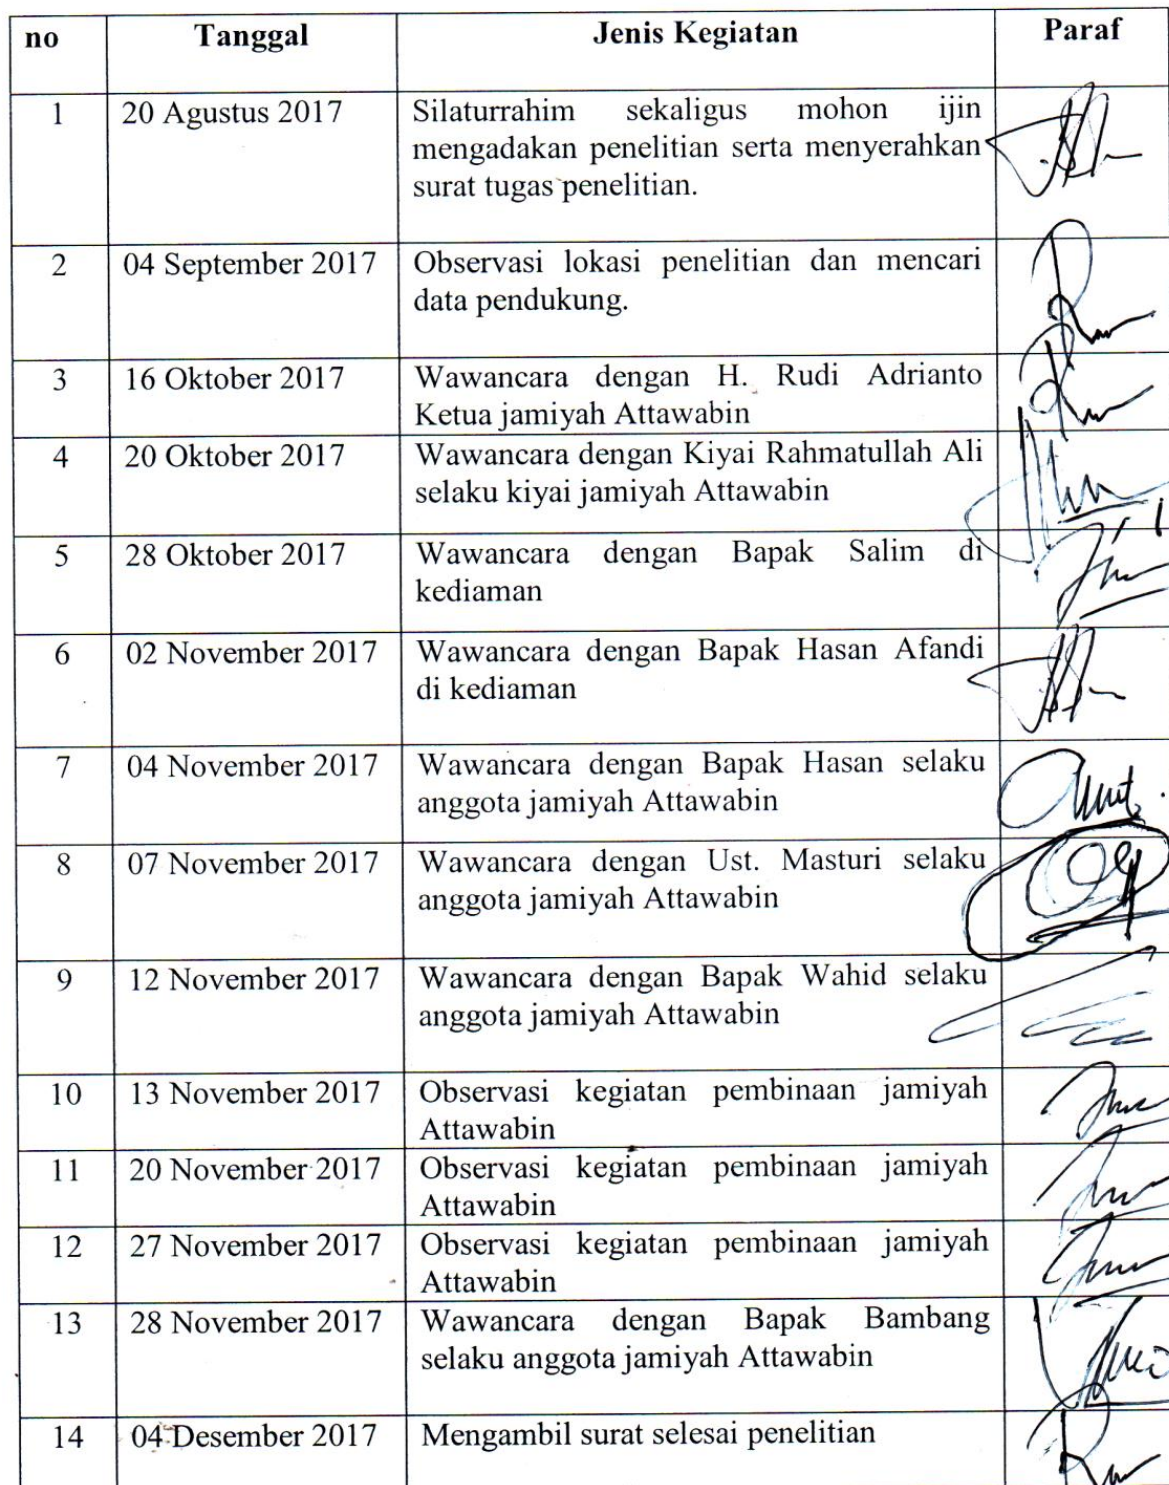 no Tanggal Jenis Kegiatan Paraf
1 20 Agustus 2017 Silaturrahim sekaligus mohon ijin
mengadakan penelitian serta menyerahkan
surat tugas penelitian.
2 04 September 2017 Observasi lokasi penelitian dan mencari
data pendukung.
3 16 Oktober 2017 Wawancara dengan H. Rudi Adrianto
Ketua jamiyah Attawabin
4 20 Oktober 2017 Wawancara dengan Kiyai Rahmatullah Ali
selaku kiyai jamiyah Attawabin
5 28 Oktober 2017 Wawancara dengan Bapak Salim di
kediaman
6 02 November 2017 Wawancara dengan Bapak Hasan Afandi
di kediaman
7 04 November 2017 Wawancara dengan Bapak Hasan selaku
anggota jamiyah Attawabin
8 07 November 2017 Wawancara dengan Ust. Masturi selaku
anggota jamiyah Attawabin
9 12 November 2017 Wawancara dengan Bapak Wahid selaku
anggota jamiyah Attawabin
10 13 November 2017 Observasi kegiatan pembinaan jamiyah
Attawabin
11 20 November 2017 Observasi kegiatan pembinaan jamiyah
Attawabin
12 27 November 2017 Observasi kegiatan pembinaan jamiyah
Attawabin
13 28 November 2017 Wawancara dengan Bapak Bambang
selaku anggota jamiyah Attawabin
14 04 Desember 2017 Mengambil surat selesai penelitian